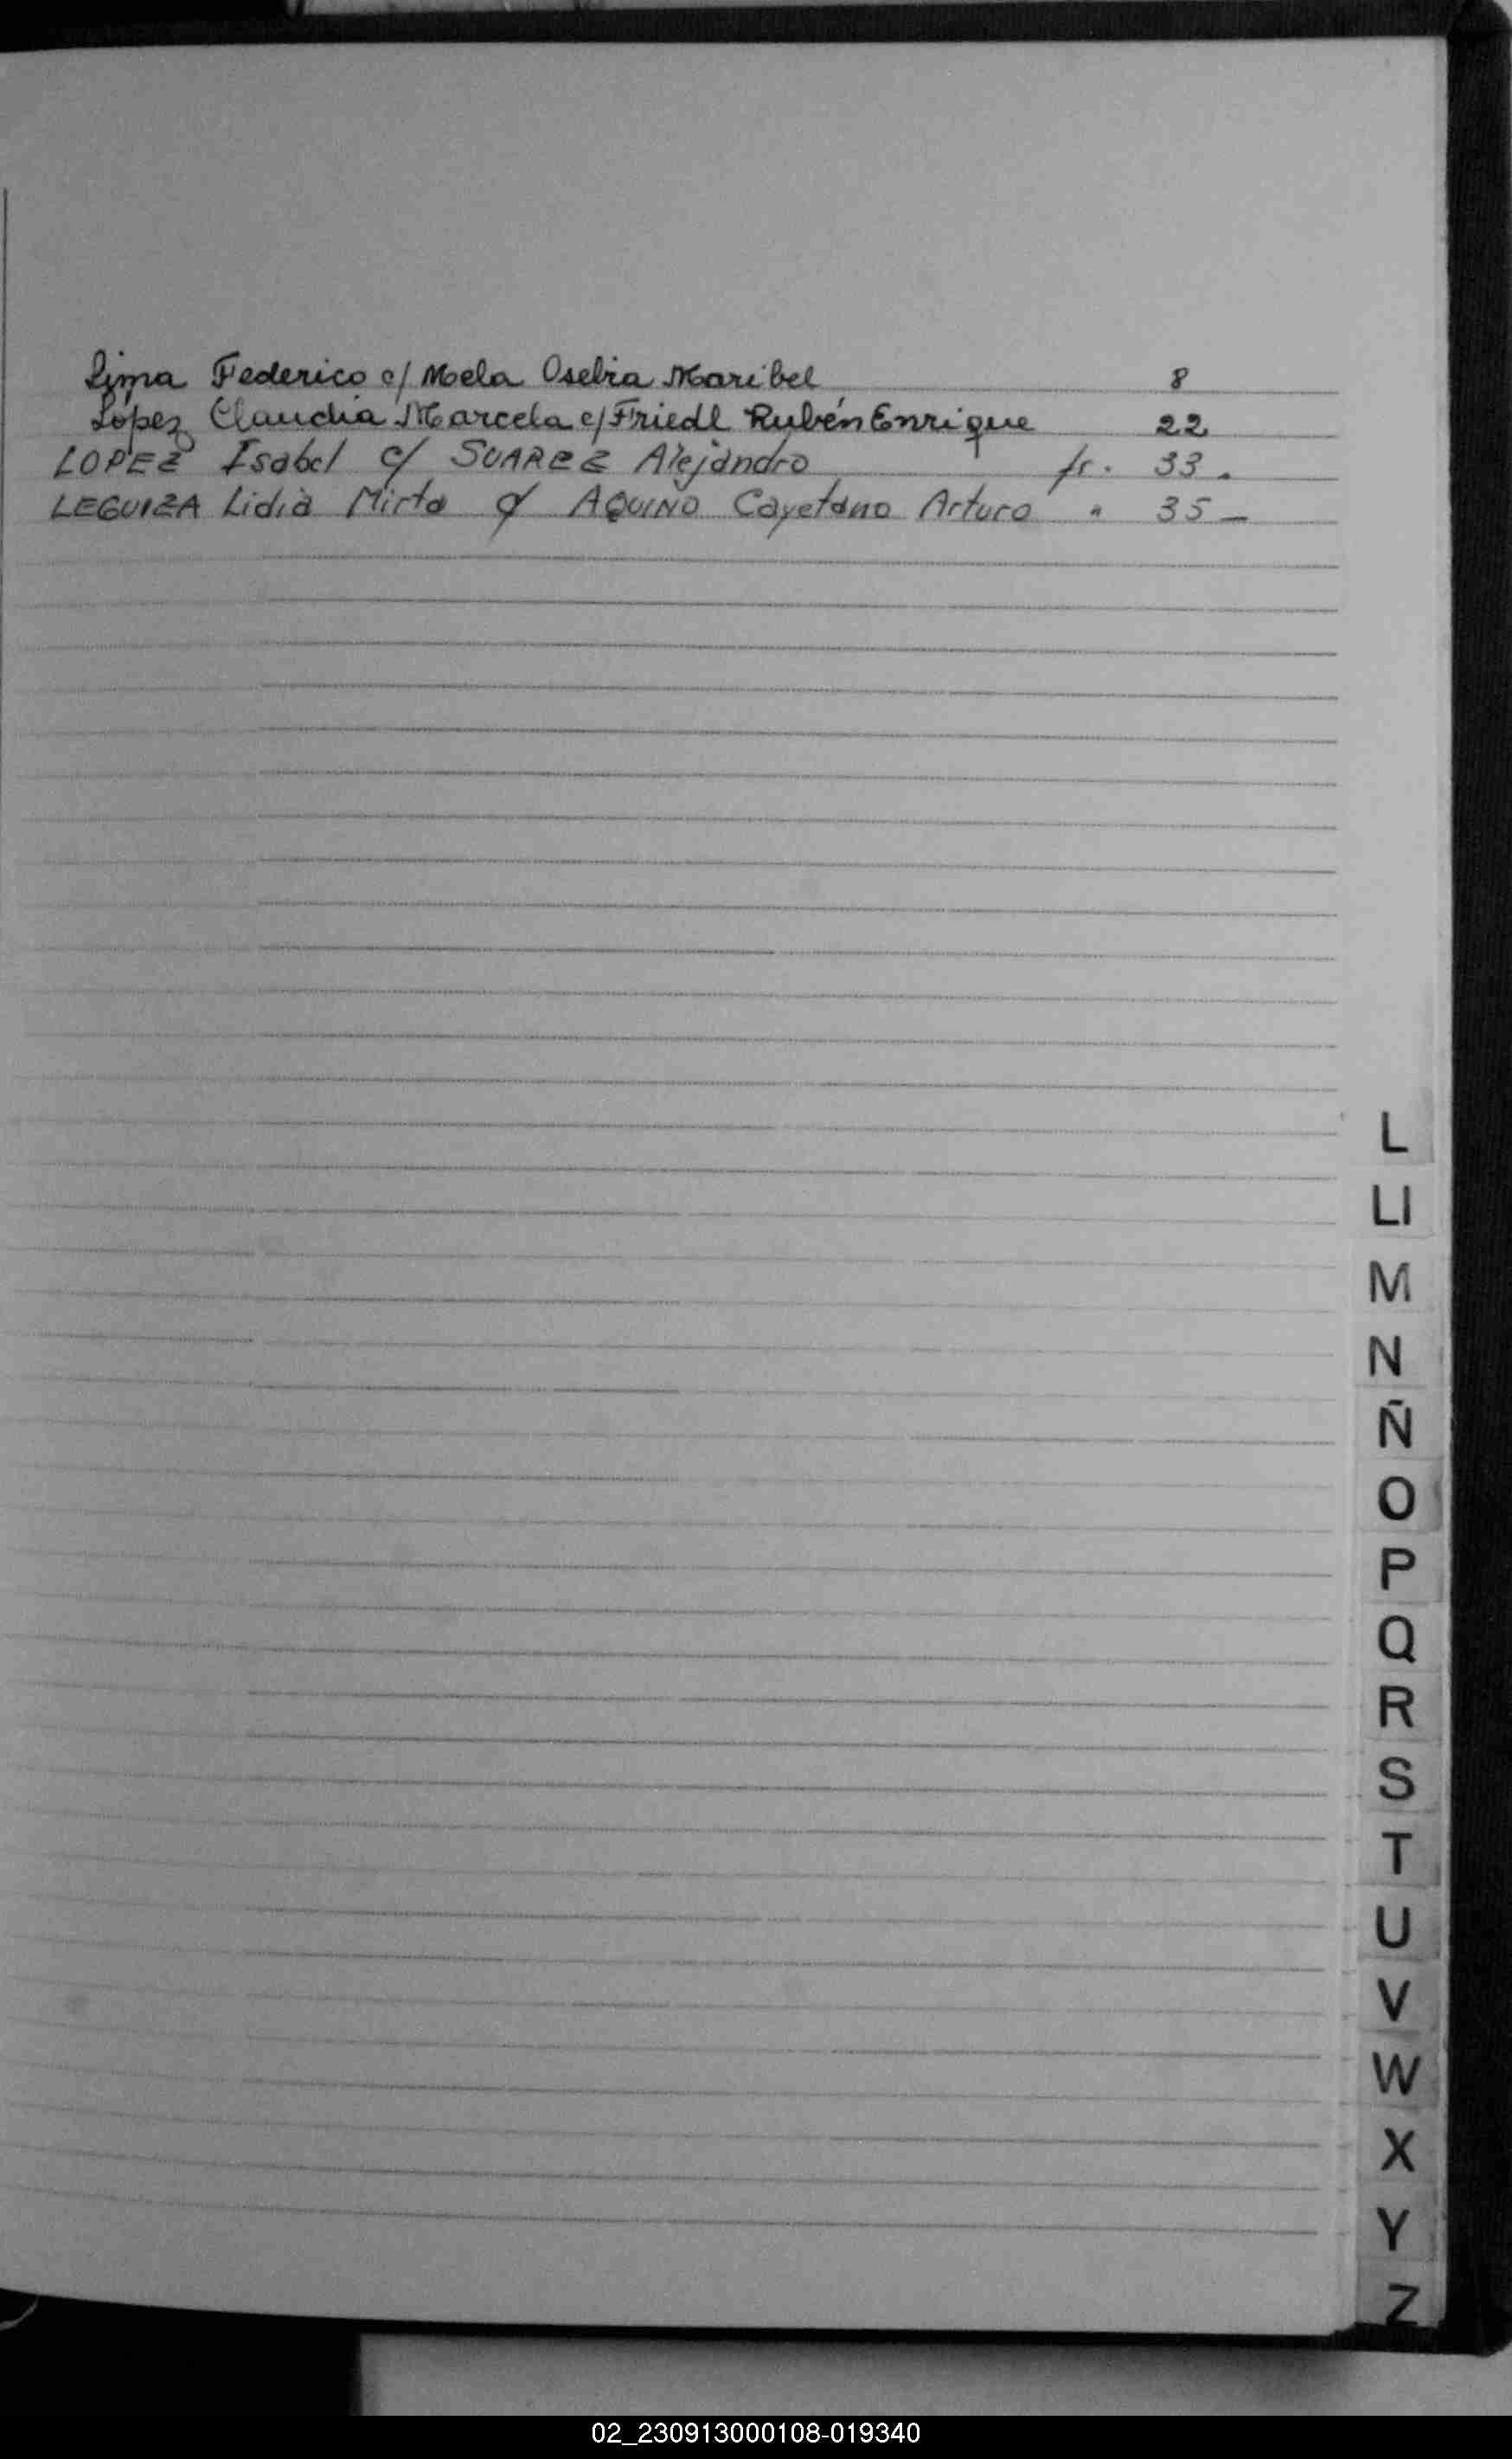 Lima Federico c/ Moela Oselia Maribel 8
López Claudia Marcela c/ Friedl Rubén Enrique 22
LOPEZ Isabel c/ SUAREZ Alejandro fr. 33.
LEGUIZA Lidia Mirta c/ AQUINO Cayetano Arturo " 35_
L
Ll
M
N
Ñ
O
P
Q
R
S
T
U
V
W
X
Y
Z
02_230913000108-019340